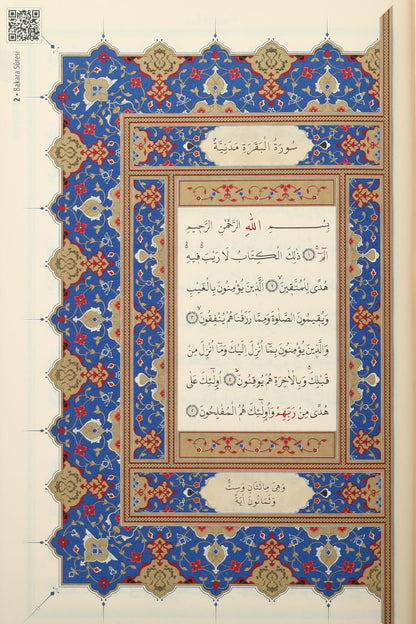 2 • Bakara Sûresi
سُورَةُ الْبَقَرَةِ مَدَنِيَّةٌ
بِسْمِ اللّٰهِ الرَّحْمٰنِ الرَّحِيمِ
الٓمٓ ﴿١﴾ ذٰلِكَ الْكِتَابُ لَا رَيْبَ فِيهِ
هُدًى لِلْمُتَّقِينَ ﴿٢﴾ اَلَّذِينَ يُؤْمِنُونَ بِالْغَيْبِ
وَيُقِيمُونَ الصَّلٰوةَ وَمِمَّا رَزَقْنَاهُمْ يُنْفِقُونَ ﴿٣﴾
وَالَّذِينَ يُؤْمِنُونَ بِمَٓا اُنْزِلَ اِلَيْكَ وَمَٓا اُنْزِلَ مِنْ
قَبْلِكَ وَبِالْاٰخِرَةِ هُمْ يُوقِنُونَ ﴿٤﴾ اُو۬لٰٓئِكَ عَلٰى
هُدًى مِنْ رَبِّهِمْ وَاُو۬لٰٓئِكَ هُمُ الْمُفْلِحُونَ ﴿٥﴾
وَهِيَ مِائَتَانِ وَسِتٌّ
وَثَمَانُونَ اٰيَةً